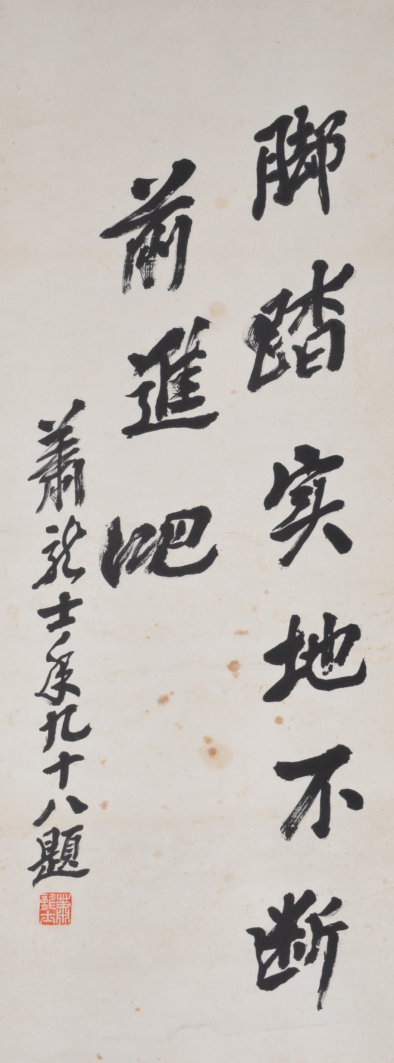 脚踏实地不断
前進吧
萧龙士年九十八题
萧龍士